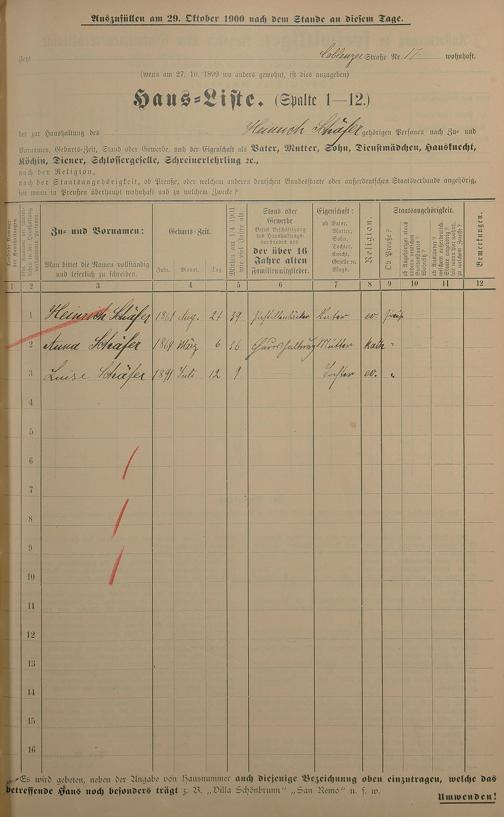 Auszufüllen am 29. Oktober 1900 nach dem Stande an diesem Tage.
Jetzt Coblenzer Straße Nr. 11 wohnhaft.
(wenn am 27. 10. 1899 wo anders gewohnt, ist dies anzugeben)
Haus-Liste. (Spalte 1—12.)
der zur Haushaltung des Heinrich Schäfer gehörigen Personen nach Zu- und
Vornamen, Geburts-Zeit, Stand oder Gewerbe, nach der Eigenschaft als Vater, Mutter, Sohn, Dienstmädchen, Hausknecht,
Köchin, Diener, Schlossergeselle, Schreinerlehrling ec.,
nach der Religion,
nach der Staatsangehörigkeit, ob Preuße, oder welchem anderen deutschen Bundesstaate oder außerdeutschen Staatsverbande angehörig,
wo man in Preußen überhaupt wohnt und zu welchem Zwecke?
Zu- und Vornamen:
Man bittet die Namen vollständig
und leserlich zu schreiben.
Geburts-Zeit.
Jahr. Monat. Tag.
Stand oder
Gewerbe
der über 16
Jahre alten
Familienmitglieder.
Eigenschaft:
ob Vater,
Mutter,
Sohn,
Tochter,
Knecht,
Geselle u.
Magd.
Religion.
Staatsangehörigkeit.
Ob Preuße?
Bemerkungen.
1 2 3 4 5 6 7 8 9 10 11 12
1 Heinrich Schäfer 1861 Aug. 21 39 Vater ev. Preuße
2 Anna Schäfer März 6 Mutter kath. "
3 Luise Schäfer 1891 Juli 12 9 Tochter ev. "
4
5
6
7
8
9
10
11
12
13
14
15
16
Es wird gebeten, neben der Angabe von Hausnummer auch diejenige Bezeichnung oben einzutragen, welche das
betreffende Haus noch besonders trägt z. B. „Villa Schönbrunn“ „San Remo“ u. s. w.
Umwenden!